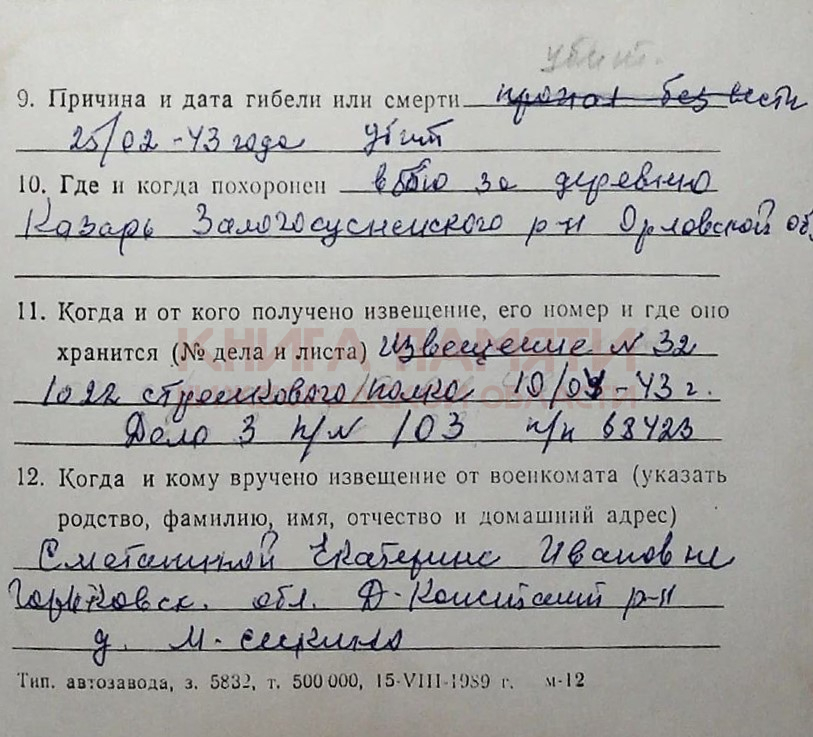 убит.
9. Причина и дата гибели или смерти пропал без вести
25/02-43 года убит
10. Где и когда похоронен в бою за деревню
Казарь Залогосусненского р-н Орловской об
11. Когда и от кого получено извещение, его номер и где оно
хранится (№ дела и листа) извещение N 32
1022 стрелкового полка 10/04-43 г.
Дело 3 п/N 103 п/п 68423
12. Когда и кому вручено извещение от военкомата (указать
родство, фамилию, имя, отчество и домашний адрес)
Сметаниной Екатерине Ивановне
Горьковск. обл. Д-Констант р-н
д. М-
Тип. автозавода, з. 5832, т. 500 000, 15-VIII-1989 г. м-12
КНИГА ПАМЯТИ
НИЖЕГОРОДСКОЙ ОБЛАСТИ